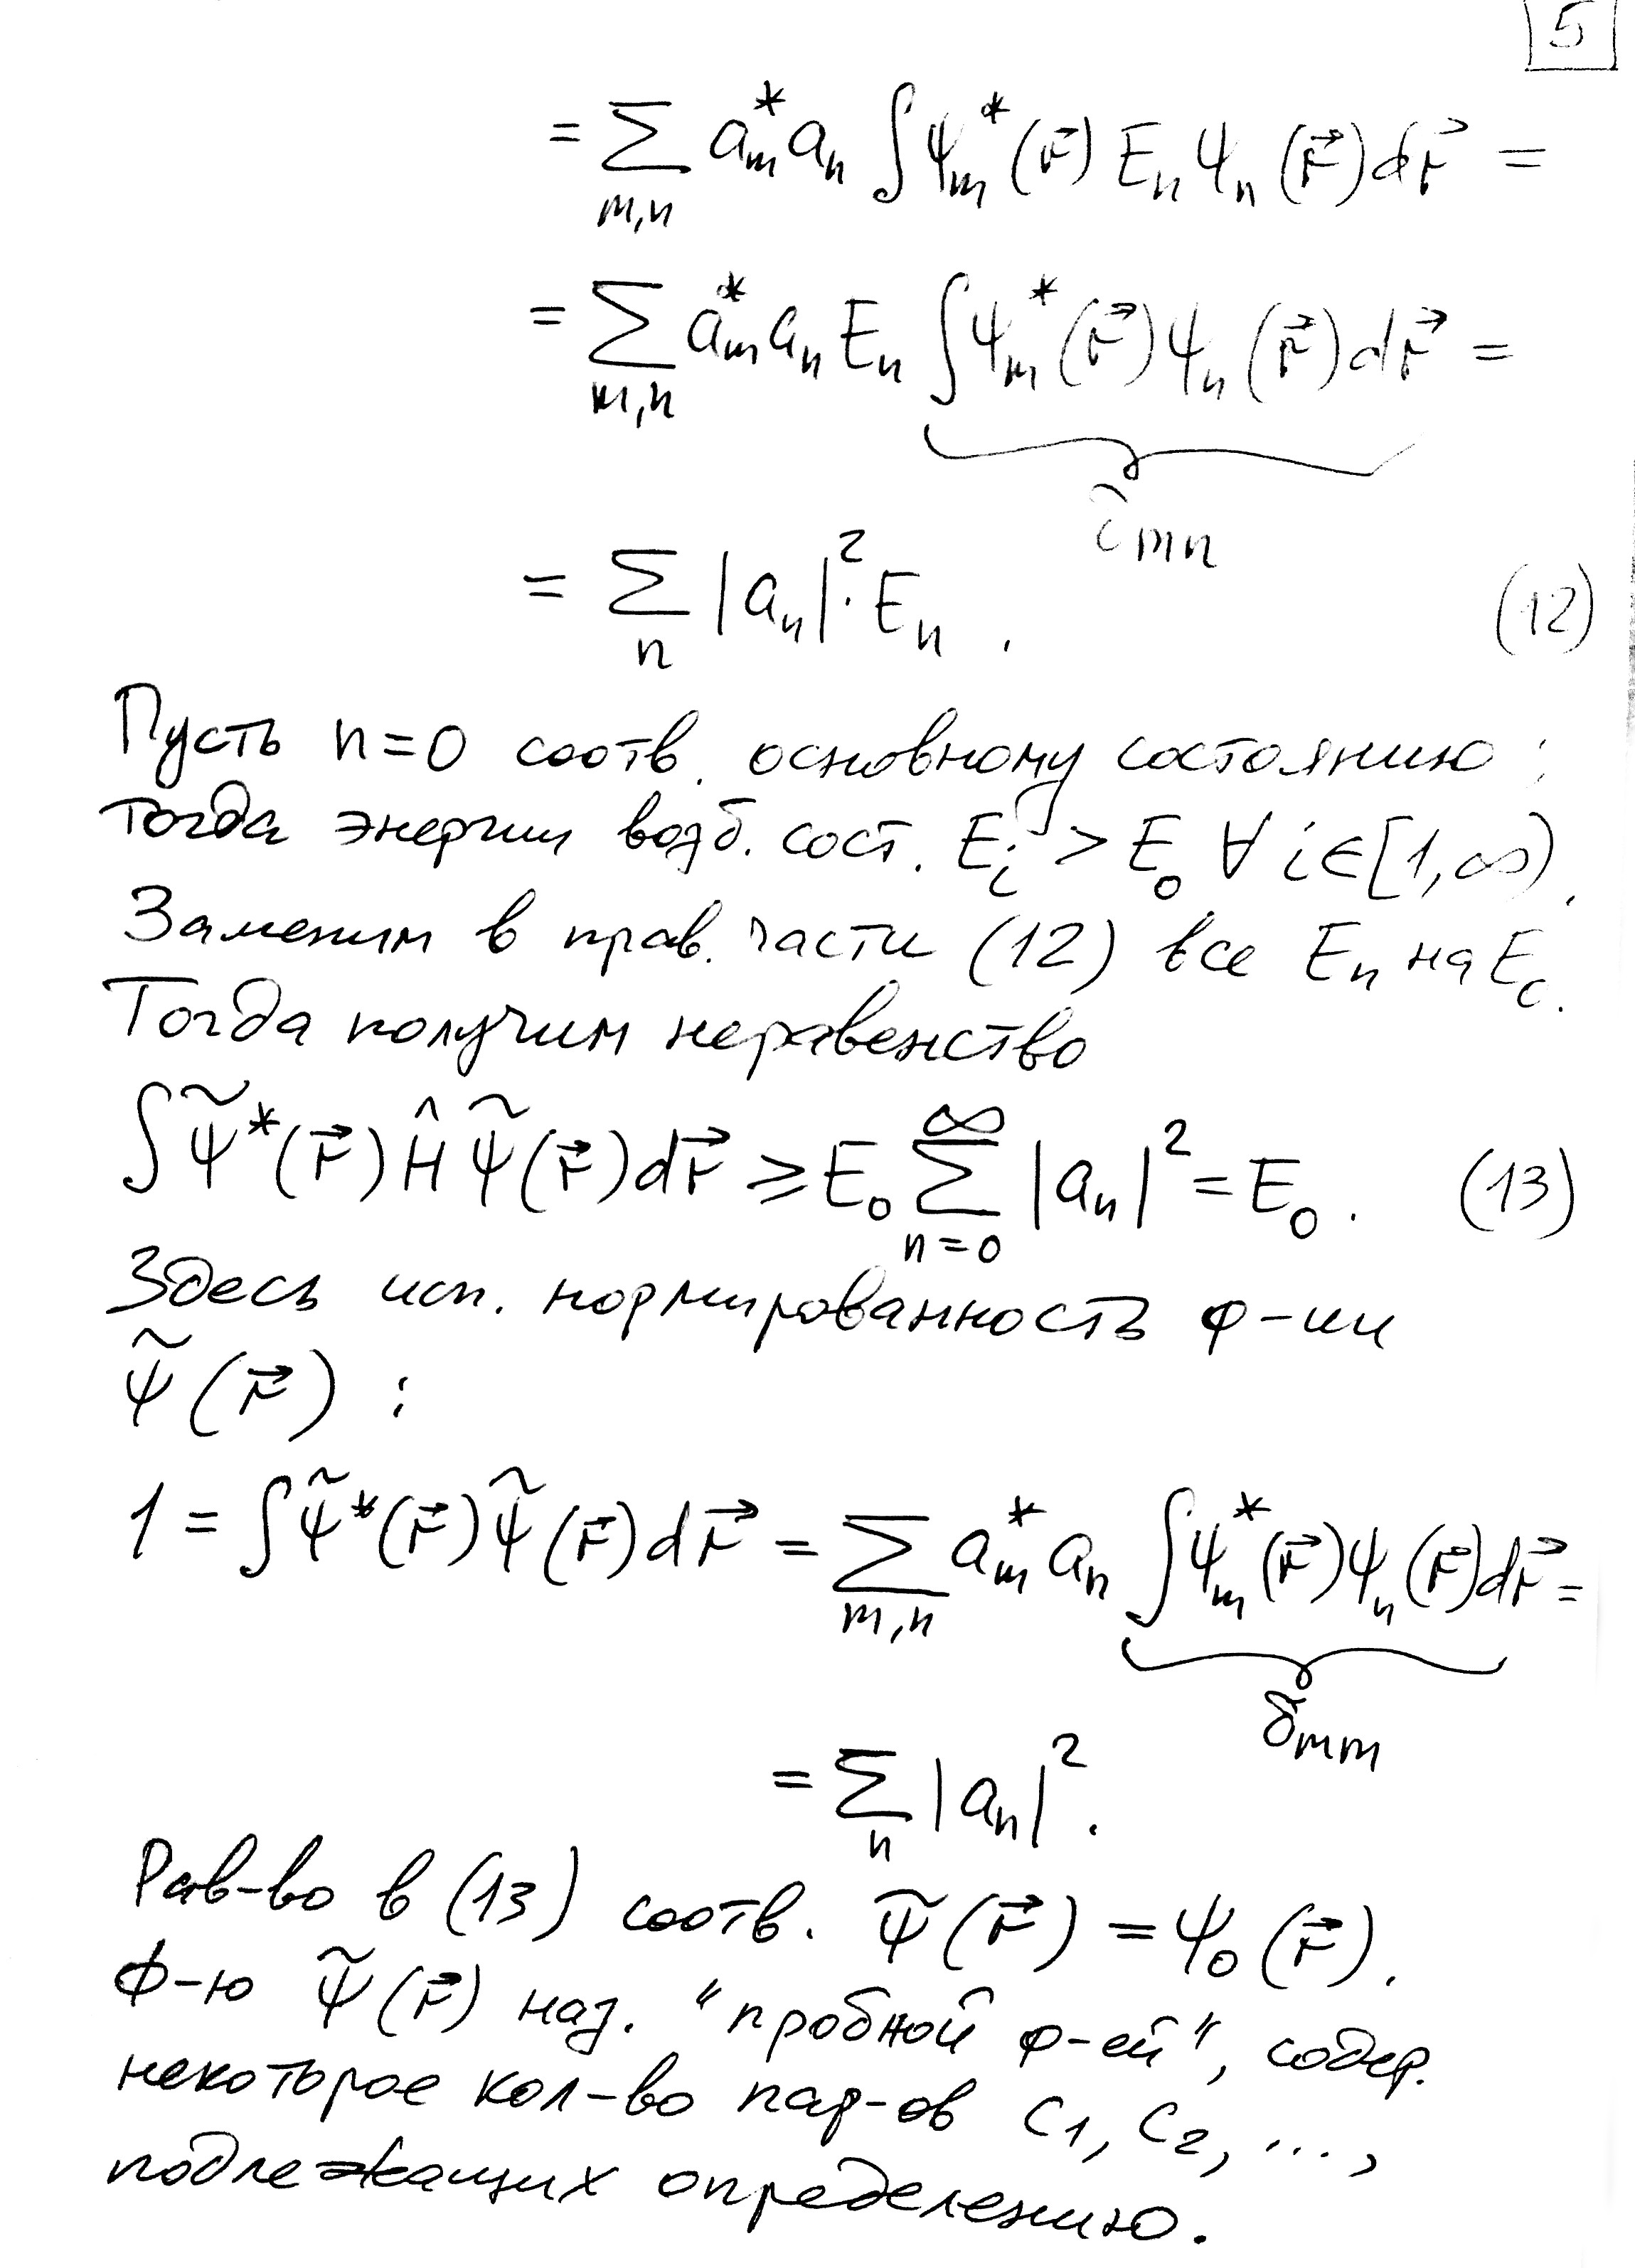 5
= ∑_{m,n} a_m^* a_n ∫ψ_m^*(r⃗) E_n ψ_n(r⃗)dr⃗ =
= ∑_{m,n} a_m^* a_n E_n ∫ψ_m^*(r⃗)ψ_n(r⃗)dr⃗ =
δ_{mn}
= ∑_n |a_n|^2 · E_n . (12)
Пусть n=0 соотв. основному состоянию;
тогда энергии возб. сост. E_i > E_0 ∀ i∈[1,∞).
Заменим в прав. части (12) все E_n на E_0.
Тогда получим неравенство
∫ψ̃^*(r⃗)Ĥψ̃(r⃗)dr⃗ ⩾ E_0 ∑_{n=0}^{∞} |a_n|^2 = E_0 . (13)
Здесь исп. нормированность ф-ии
ψ̃(r⃗) :
1 = ∫ψ̃^*(r⃗)ψ̃(r⃗)dr⃗ = ∑_{m,n} a_m^* a_n ∫ψ_m^*(r⃗)ψ_n(r⃗)dr⃗ =
δ_{mm}
= ∑_n |a_n|^2 .
Рав-во в (13) соотв. ψ̃(r⃗) = ψ_0(r⃗).
Ф-ю ψ̃(r⃗) наз. "пробной ф-ей", содер.
некоторое кол-во пар-ов C_1, C_2, ...,
подлежащих определению.